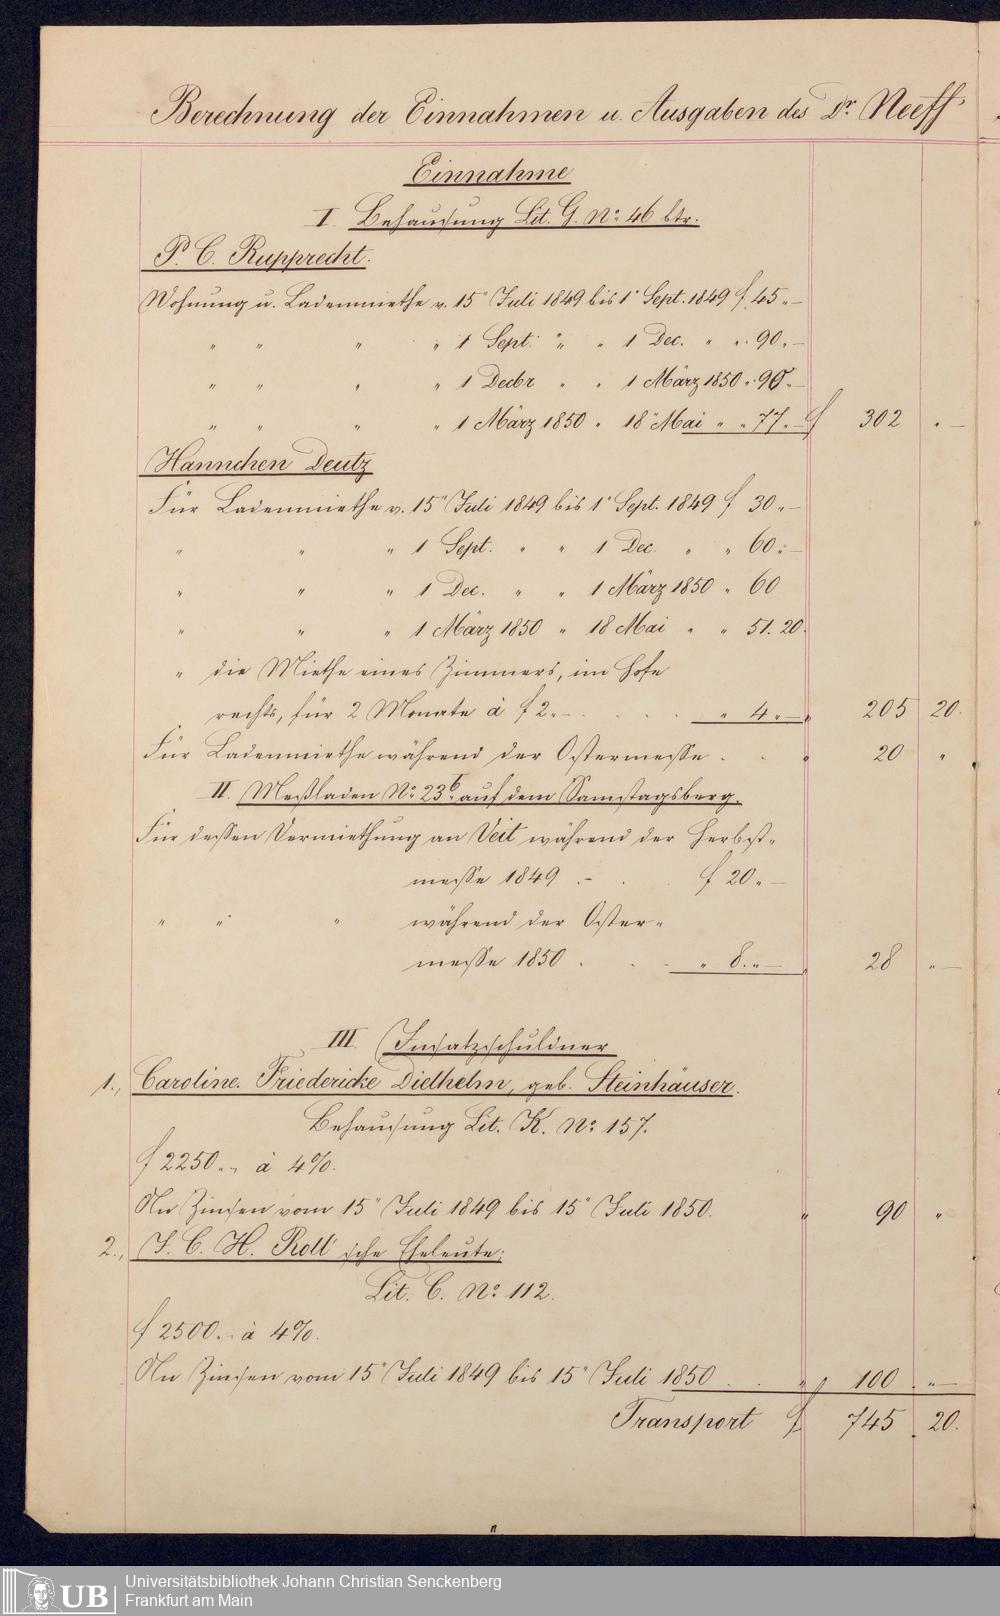 Berechnung der Einnahmen u. Ausgaben des Dr. Neeff
Einnahme
I. Behausung Lit. G. No. 46 ltr.
P. C. Rupprecht.
Wohnung u. Ladenmiethe v. 15" Juli 1849 bis 1" Sept. 1849 f 45 „ —
„ „ „ „ 1 Sept. „ „ 1 Dec. „ „ 90 „ —
„ „ „ „ 1 Decbr „ „ 1 März 1850 „ 90 „ —
„ „ „ „ 1 März 1850 „ 18" Mai „ „ 77 „ — f 302 „ —
Hannchen Deutz
Für Ladenmiethe v. 15" Juli 1849 bis 1" Sept. 1849 f 30 „ —
„ „ „ 1 Sept. „ „ 1 Dec. „ „ 60 „ —
„ „ „ 1 Dec. „ „ 1 März 1850 „ 60
„ „ „ 1 März 1850 „ 18 Mai „ „ 51. 20.
„ die Miethe eines Zimmers, im Hofe
rechts, für 2 Monate à f 2 „ — . . . . „ 4 „ — „ 205 20.
Für Ladenmiethe während der Ostermesse . . „ 20 „
II. Meßladen No. 23b. auf dem Samstagsberg.
Für dessen Vermiethung an Veit während der Herbst-
messe 1849 . — . f 20 „ —
„ „ „ während der Oster-
messe 1850 . . . „ 8. „ — „ 28 „ —
III. Insatzschuldner
1., Caroline. Friedericke Dielhelm, geb. Steinhäuser.
Behausung Lit. K. No. 157.
f 2250. „ à 4%.
An Zinsen vom 15" Juli 1849 bis 15" Juli 1850. „ 90 „
2., J. C. H. Roll'sche Eheleute;
Lit. C. No. 112.
f 2500. „ à 4%.
An Zinsen vom 15" Juli 1849 bis 15" Juli 1850 . . „ 100 . „ —
Transport f. 745 . 20.
UB Universitätsbibliothek Johann Christian Senckenberg
Frankfurt am Main